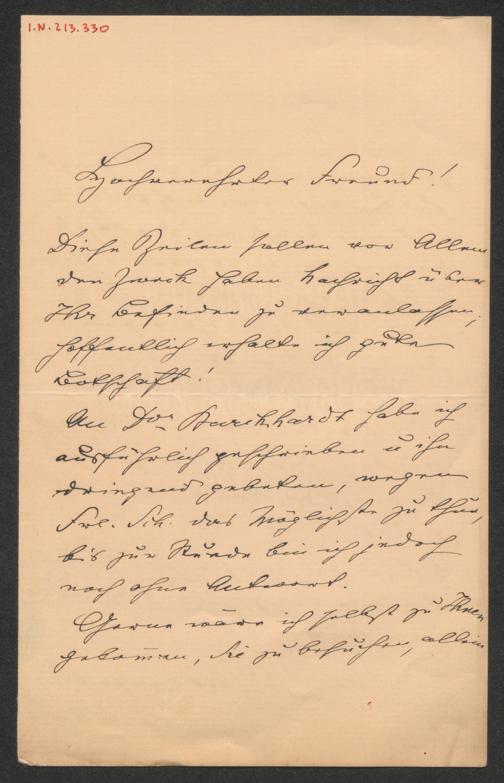 I.N. 213.330
Hochverehrter Freund!
Diese Zeilen sollen vor Allem
den Zweck haben Nachricht über
Ihr Befinden zu veranlassen,
hoffentlich erhalte ich gute
Botschaft!
An Dor Burckhardt habe ich
ausführlich geschrieben u ihn
dringend gebeten, wegen
Frl. Sch. das Möglichste zu thun,
bis zur Stunde bin ich jedoch
noch ohne Antwort.
Gerne wäre ich selbst zu Ihnen
gekom̅en, Sie zu besuchen, allein